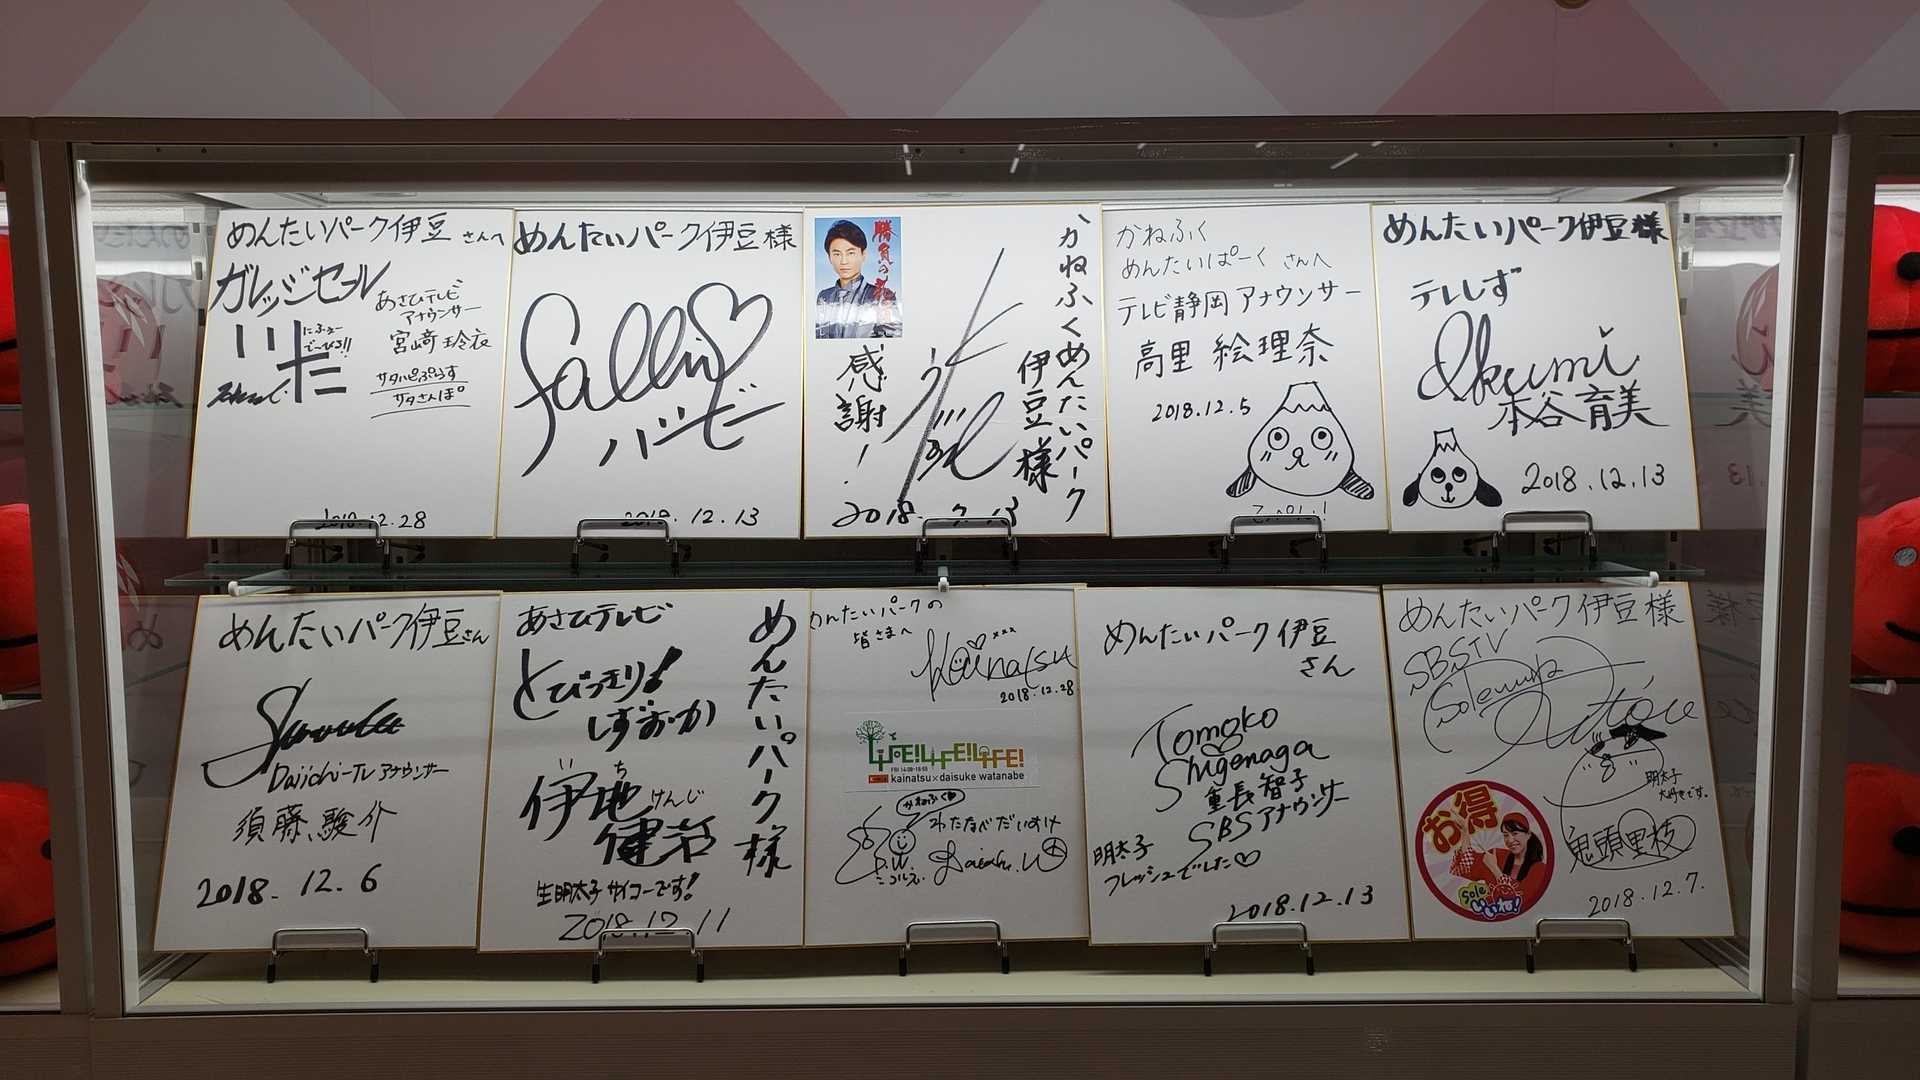 めんたいパーク伊豆 さんへ
ガレッジセール
あさひテレビ
アナウンサー
宮﨑 玲衣
サタハピぷらす
サタさんぽ
2018.12.28
めんたいパーク伊豆様
Sally♡
バービー
2018.12.13
かねふくめんたいパーク
伊豆様
感謝!
2018.7.13
かねふく
めんたいぱーく さんへ
テレビ静岡 アナウンサー
高里 絵理奈
2018.12.5
めんたいパーク伊豆様
テレしず
Ikumi
本谷育美
2018.12.13
めんたいパーク伊豆さん
Daiichi-TV アナウンサー
須藤駿介
2018.12.6
めんたいパーク様
あさひテレビ
とびっきり!
しずおか
伊地
健治
けんじ
生明太子サイコーです!
2018.12.11
めんたいパークの
皆さまへ
Kainatsu
2018.12.28
LIFE!!LIFE!!LIFE!
kainatsu×daisuke watanabe
かねふく
わたなべだいすけ
めんたいパーク伊豆
さん
Tomoko
Shigenaga
重長智子
SBSアナウンサー
明太子
フレッシュでした♡
2018.12.13
めんたいパーク伊豆様
SBSTV
明太子
大好きです。
お得
Sole
いいね!
鬼頭里枝
2018.12.7.